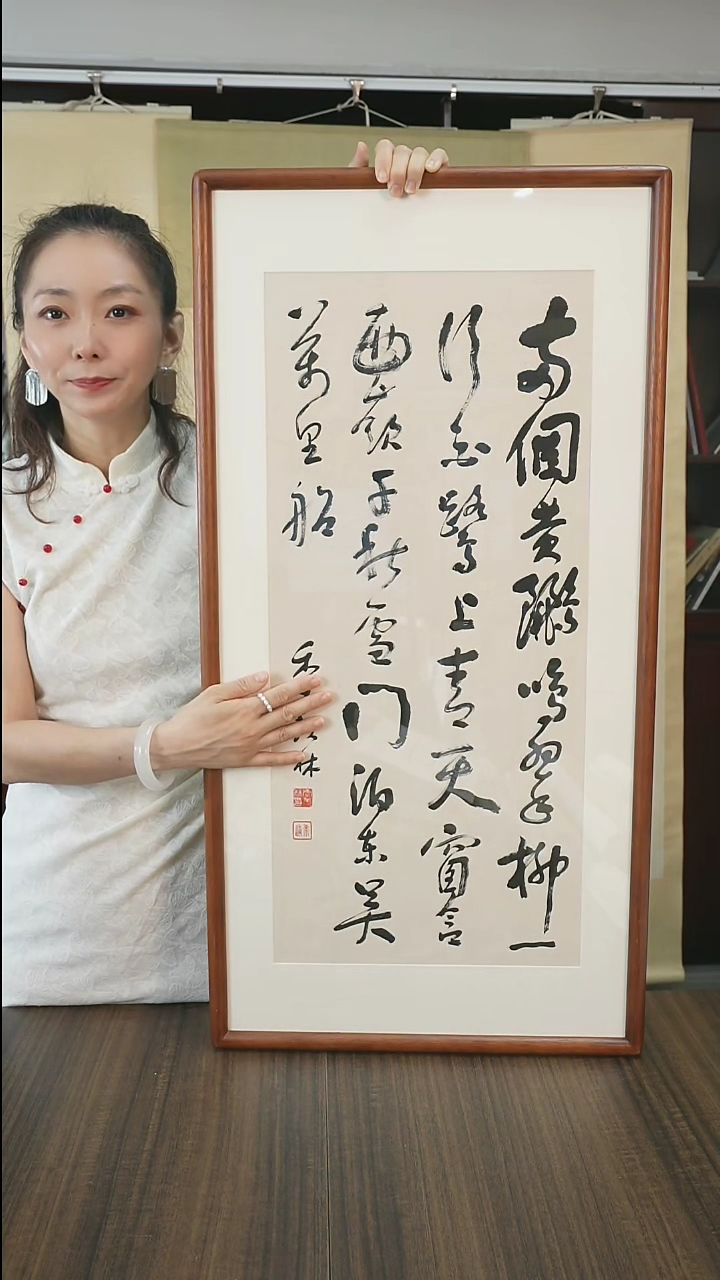 兩個黄鸝鳴翠柳一
行白鷺上青天窗含
西嶺千秋雪門泊東吴
萬里船
林